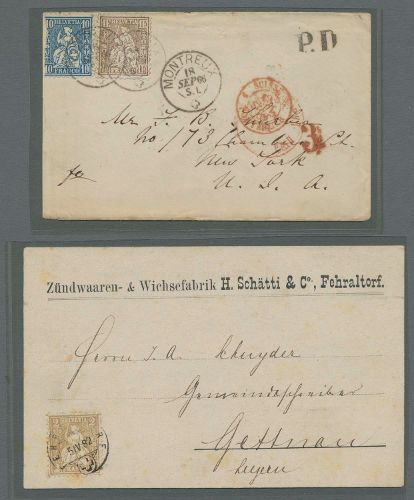 10 HELVETIA 10
FRANCO
HELVETIA
MONTREUX
18
SEP 66
(S.L)
P.D
3
Mr J. B.
No / 73 Chambers St.
New York
U. S. A.
Zündwaaren- & Wichsefabrik H. Schätti & Co, Fehraltorf.
Herrn J. A.
Gemeindschreiber
Gettnau
Luzern
2 2
5 IV 82